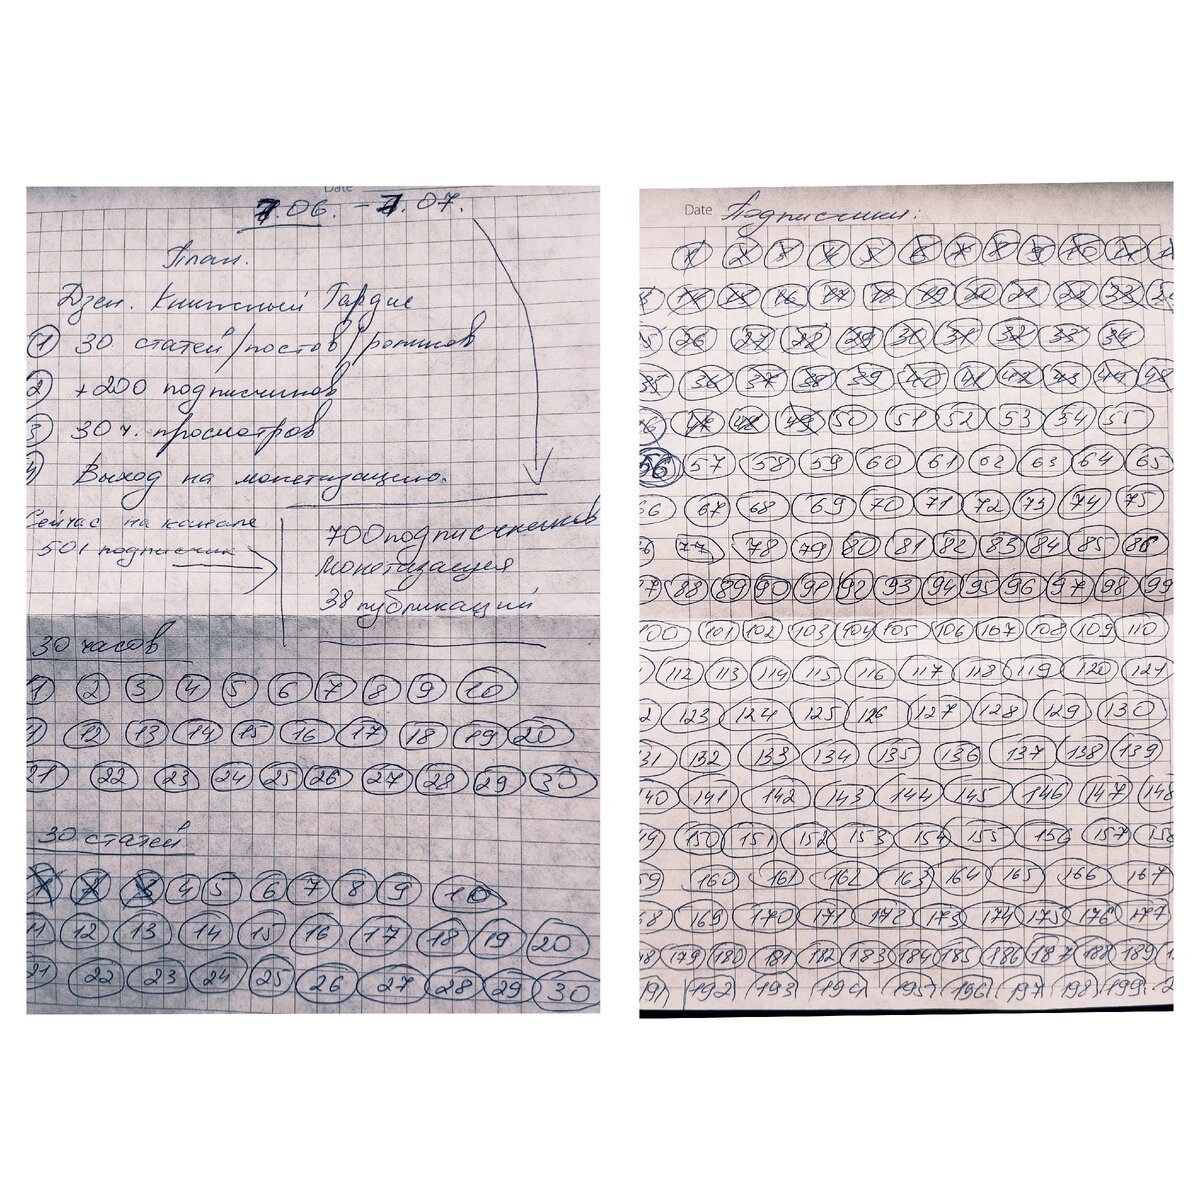 Date
7.06. - 7.07.
План.
Дзен. Книжный Гардие
1 30 статей/постов/роликов
2 +200 подписчиков
3 30 ч. просмотров
4 Выход на монетизацию.
Сейчас на канале
501 подписчик
700 подписчиков
Монетизация
38 публикаций
30 часов
1 2 3 4 5 6 7 8 9 10
11 12 13 14 15 16 17 18 19 20
21 22 23 24 25 26 27 28 29 30
30 статей
1 2 3 4 5 6 7 8 9 10
11 12 13 14 15 16 17 18 19 20
21 22 23 24 25 26 27 28 29 30
Date Подписчики:
1 2 3 4 5 6 7 8 9 10 11
14 15 16 17 18 19 20 21 22 23
26 27 28 29 30 31 32 33 34
35 36 37 38 39 40 41 42 43 44 45
47 48 49 50 51 52 53 54 55
56 57 58 59 60 61 62 63 64 65
66 67 68 69 70 71 72 73 74 75
77 78 79 80 81 82 83 84 85 86
88 89 90 91 92 93 94 95 96 97 98 99
100 101 102 103 104 105 106 107 108 109 110
112 113 114 115 116 117 118 119 120 121
123 124 125 126 127 128 129 130
131 132 133 134 135 136 137 138 139
140 141 142 143 144 145 146 147 148
150 151 152 153 154 155 156 157 158
160 161 162 163 164 165 166 167
169 170 171 172 173 174 175 176 177
179 180 181 182 183 184 185 186 187 188 189
191 192 193 194 195 196 197 198 199